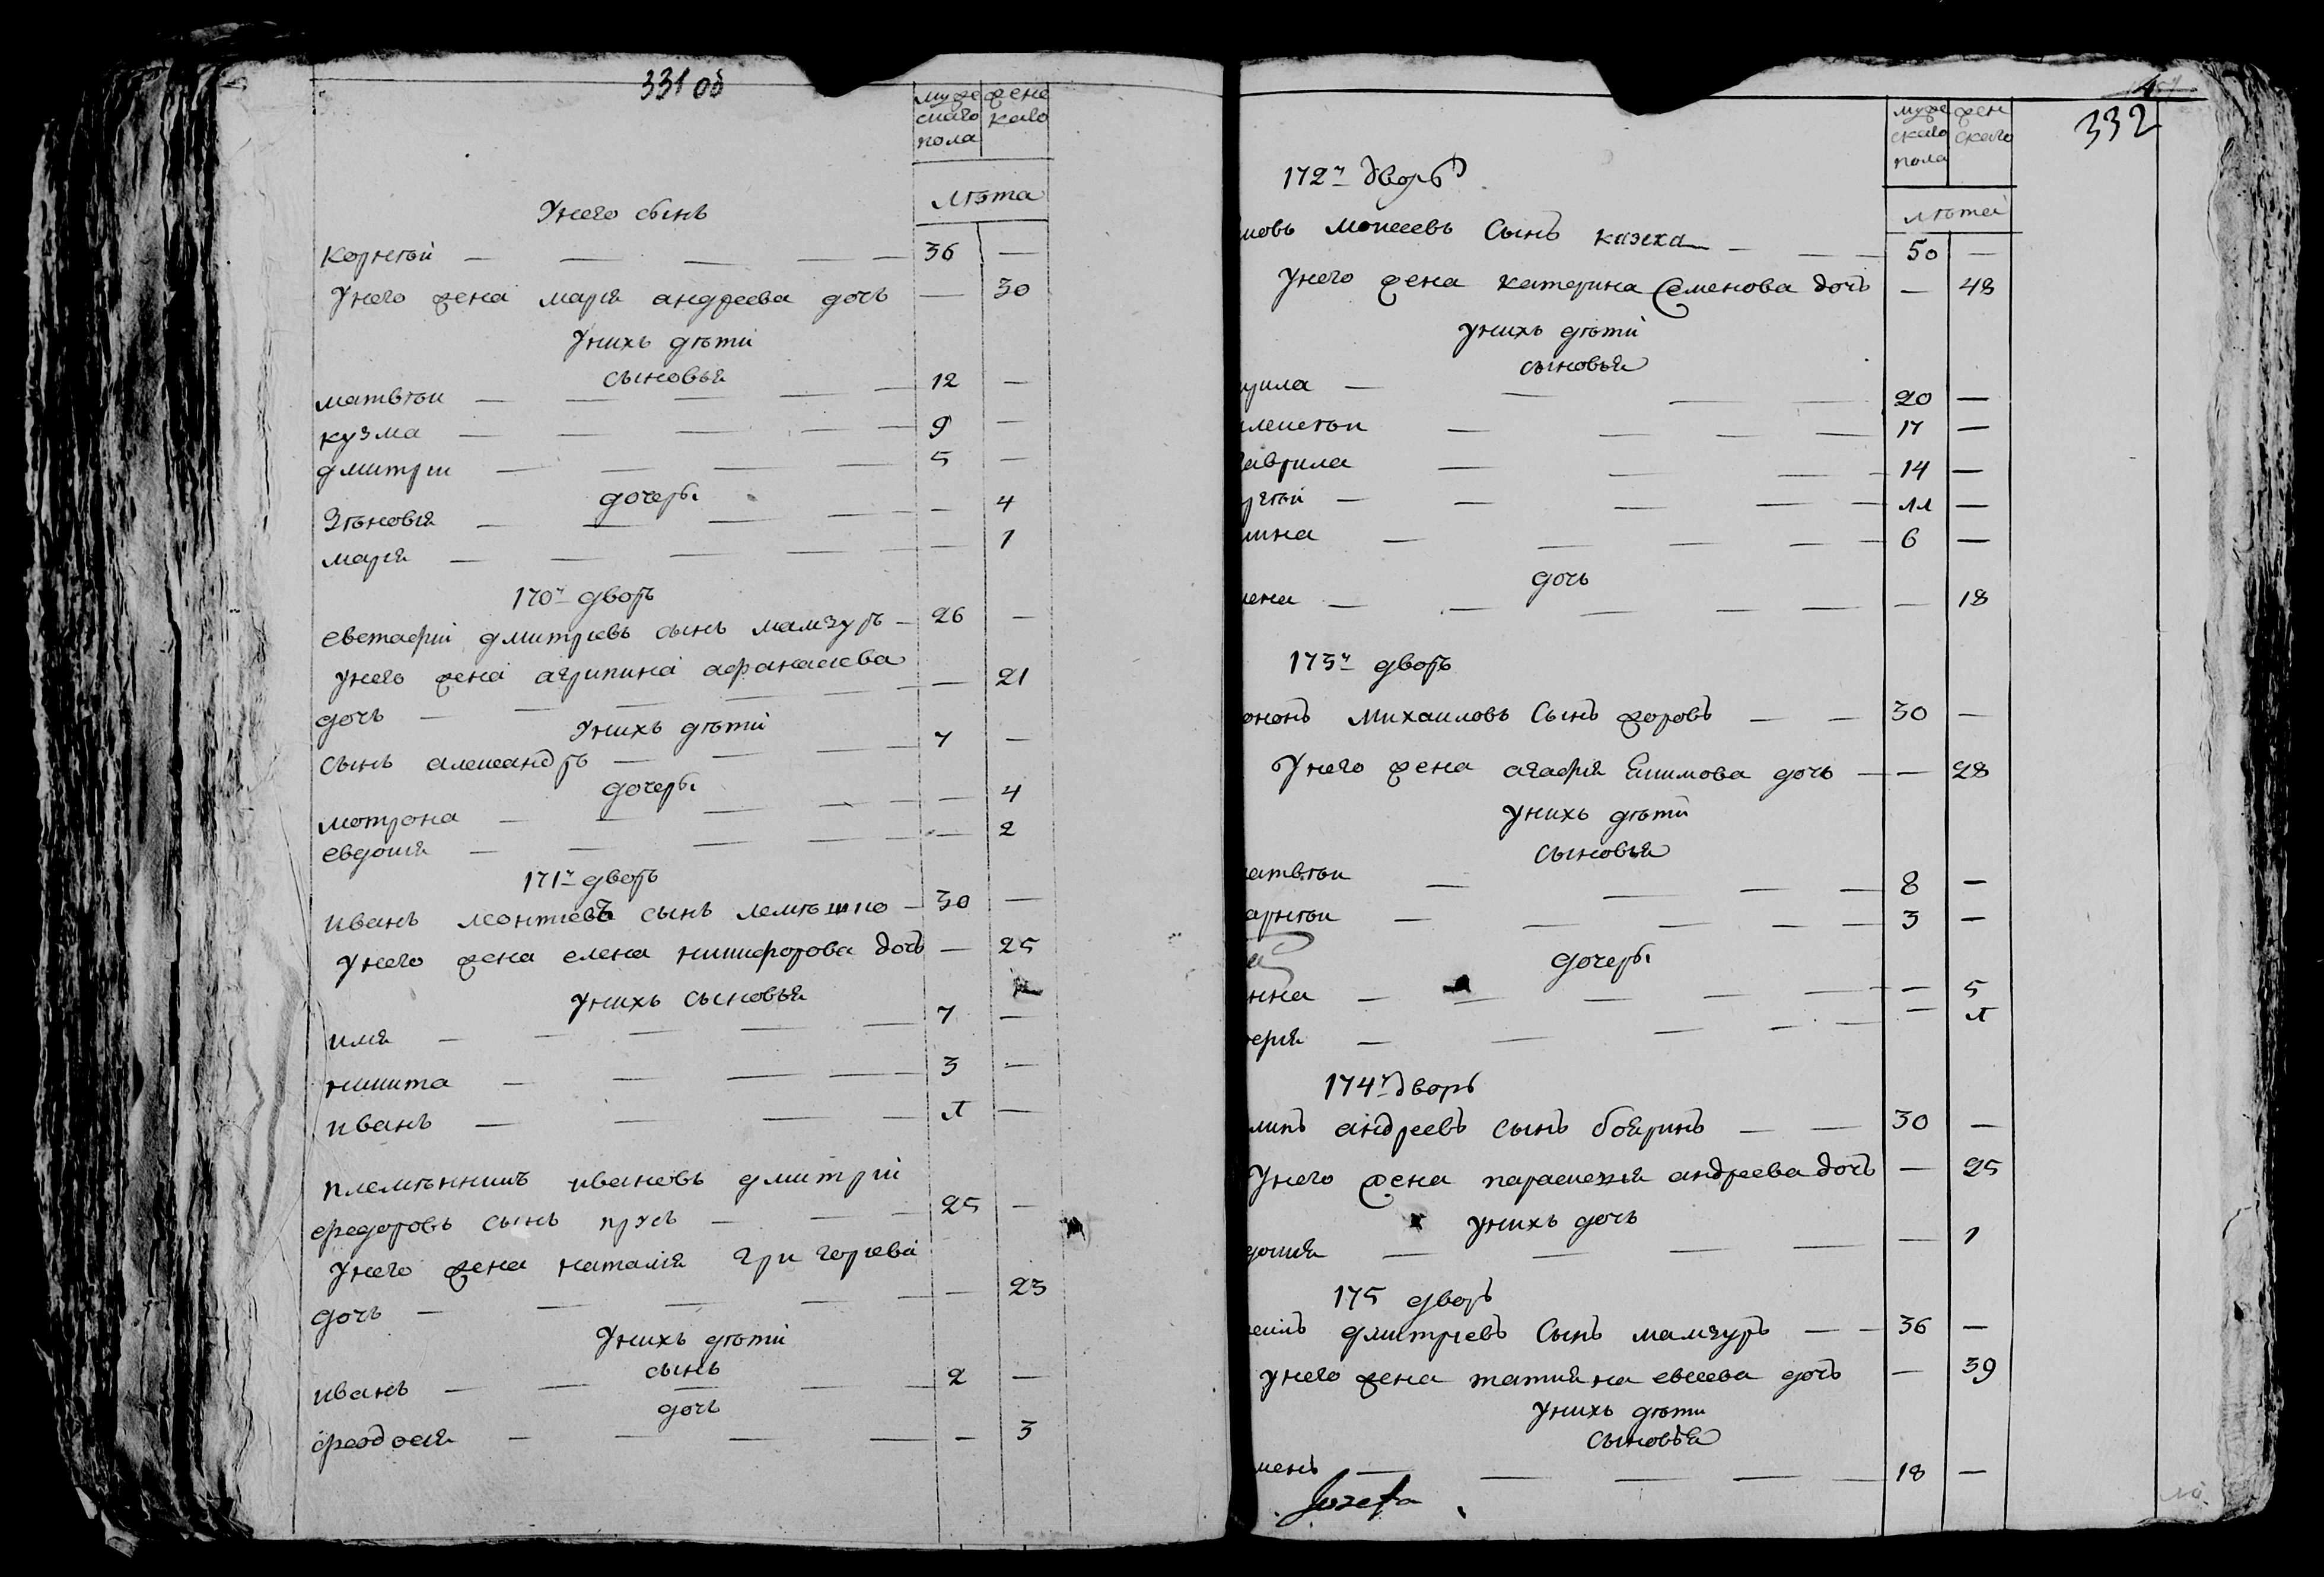 331 об
муже
скаго
пола
жене
каго
лѣта
Унего сынъ
корнѣй — — — — — 36 —
Унего жена марія андреева дочь — 30
Унихъ дѣти
сыновья
матвѣи — — — — — 12 —
кузма — — — — — 9 —
дмитріи — — — — 5 —
дочеры
Зѣновія — — — — — 4
марія — — — — — 1
170й дворъ
евстафіи дмитріевъ сынъ мамзуръ — 26 —
унего жена агрипина афанасіева
дочь — — — — — 21
Унихъ дѣти
сынъ алеѯандръ — — — 7 —
дочеры
мотрона — — — — — 4
евдокия — — — — — 2
171й дворъ
иванъ леонтіевъ сынъ лемѣшко — 30 —
унего жена елена никифорова дочь — 25
унихъ сыновья
илия — — — — — 7 —
никита — — — — 3 —
иванъ — — — — 1 —
племѣнникъ ивановъ дмитріи
федоровъ сынъ прусъ — — — 25 —
Унего жена наталия григоріева
дочь — — — — — 23
Унихъ дѣти
сынъ
иванъ — — — — — 2 —
дочь
феодосия — — — — — 3
332
муже
скаго
пола
жен
скаго
лѣтей
172й дворъ
мовъ моисеевъ Сынъ казка — — 50 —
Унего жена катерина Семенова дочь — 48
унихъ дѣти
сыновья
уила — — — — 20 —
алексѣи — — — — 17 —
гаврила — — — 14 —
ргѣй — — — — — 11 —
мина — — — — — 6 —
дочь
лена — — — — — — 18
173й дворъ
ононъ Михаиловъ Сынъ жоровъ — — 30 —
Унего жена агафия Екимова дочь — — 28
унихъ дѣти
сыновья
атвѣи — — — — 8 —
арнѣи — — — — — 3 —
дочеры
нна — — — — — — 5
ерия — — — — — — 1
174й дворъ
липъ андреевъ сынъ бояринъ — — 30 —
Унего жена параскевия андреева дочь — 25
унихъ дочь
докия — — — — — 1
175 дворъ
дмитріевъ Сынъ мамзуръ — — 36 —
унего жена татияна евсеева дочь — 39
Унихъ дѣти
сыновья
мень — — — — — 18 —
Jozefa